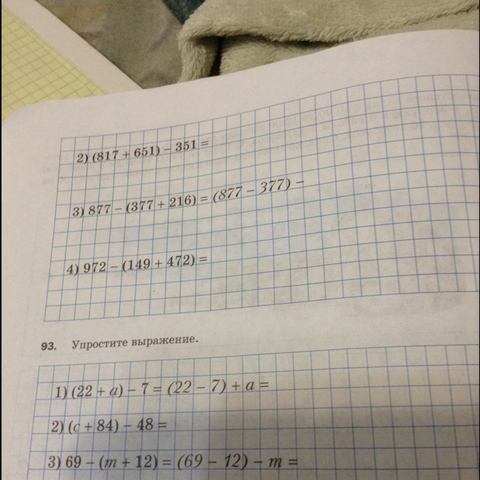 2) (817 + 651) − 351 =
3) 877 − (377 + 216) = (877 − 377) −
4) 972 − (149 + 472) =
93. Упростите выражение.
1) (22 + a) − 7 = (22 − 7) + a =
2) (c + 84) − 48 =
3) 69 − (m + 12) = (69 − 12) − m =